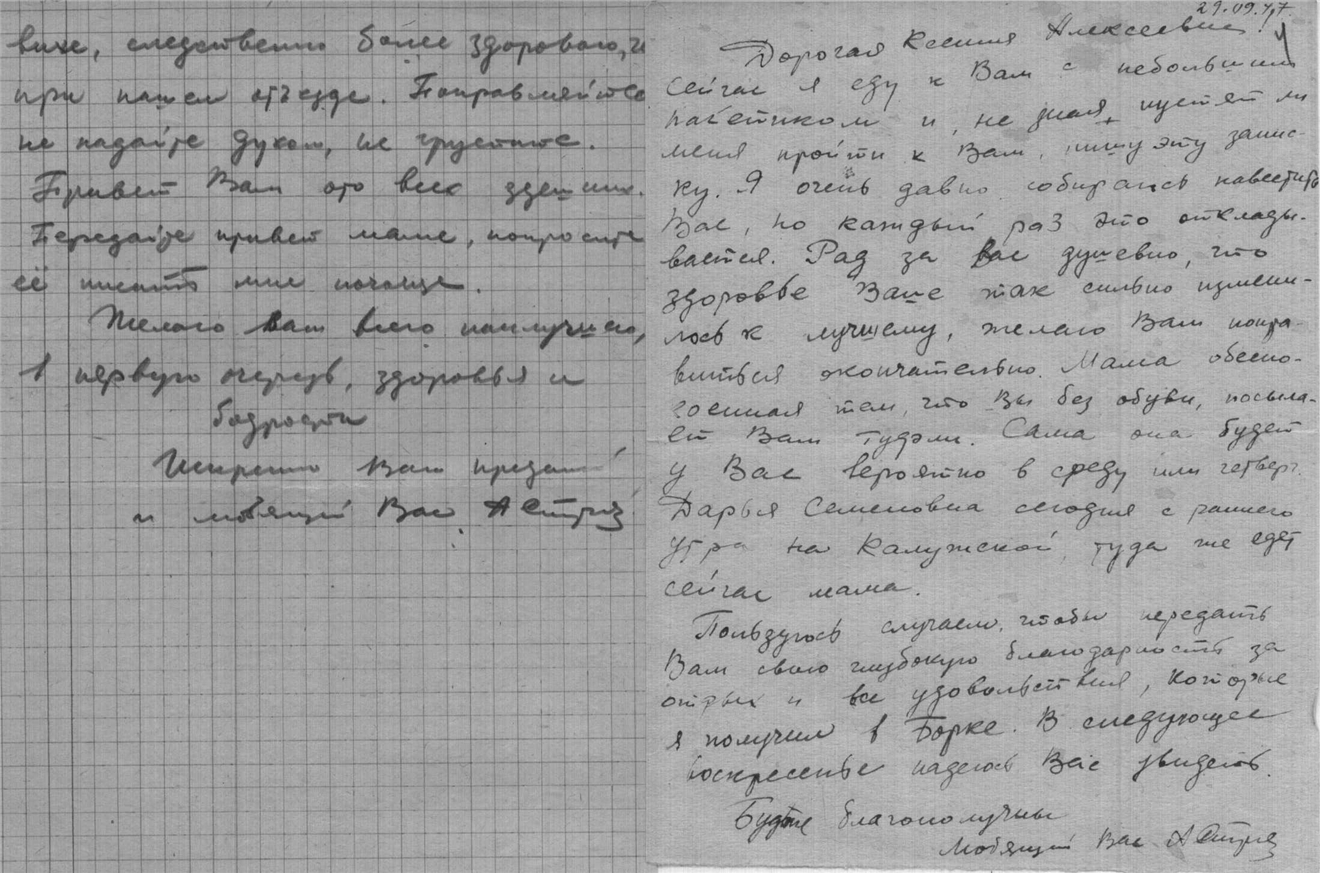 виде, следственно более здорового, ч
при нашем отъезде. Поправляйтесь
не падайте духом, не грустите.
Привет Вам ото всех здешних.
Передайте привет маме, попросите
её писать мне почаще.
Желаю Вам всего наилучшего,
в первую очередь, здоровья и
бодрости
Искренно Вам преданный
и любящий Вас АСтриж
29.09.47.
Дорогая Ксения Алексеевна!
Сейчас я еду к Вам с небольшим
пакетиком и, не зная, пустят ли
меня пройти к Вам, пишу эту запис-
ку. Я очень давно собираюсь навестить
Вас, но каждый раз это отклады-
вается. Рад за Вас душевно, что
здоровье Ваше так сильно измени-
лось к лучшему, желаю Вам попра-
виться окончательно. Мама обеспо-
коенная тем, что Вы без обуви, посыла-
ет Вам туфли. Сама она будет
у Вас вероятно в среду или четверг.
Дарья Семеновна сегодня с раннего
утра на Калужской, туда же едет
сейчас мама.
Пользуюсь случаем, чтобы передать
Вам свою глубокую благодарность за
отдых и все удовольствия, которые
я получил в Борке. В следующее
воскресенье надеюсь Вас увидеть.
Будьте благополучны
Любящий Вас АСтриж